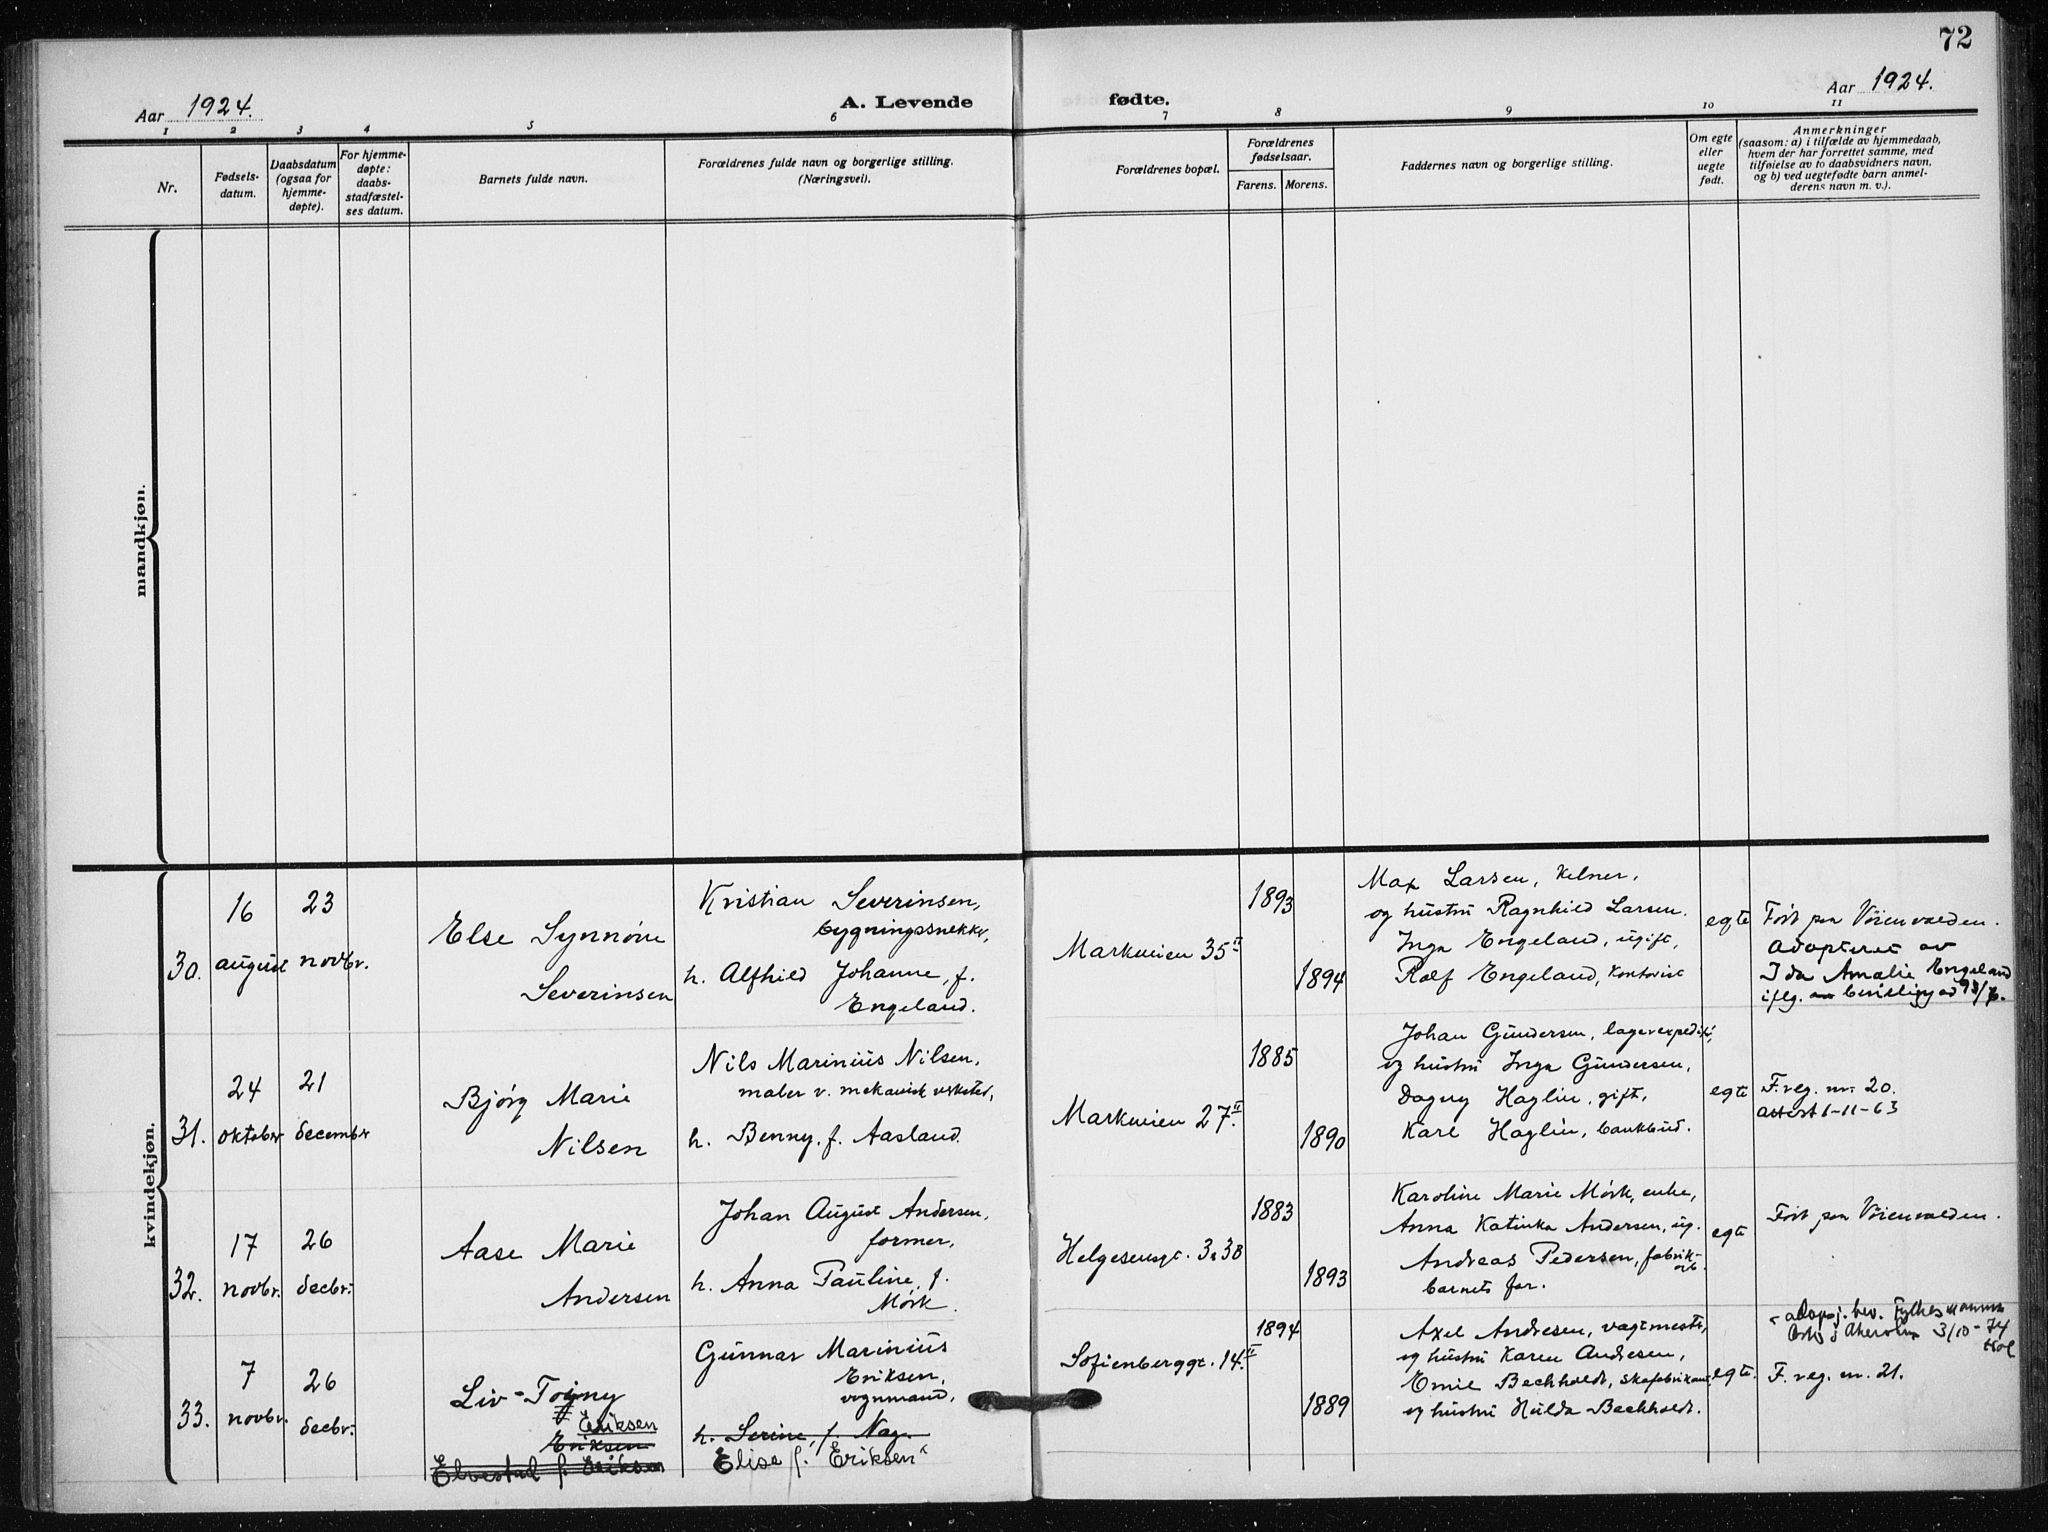 72
Aar 1924.
A. Levende
fødte.
Aar 1924.
1 2 3 4 5 6 7 8 9 10 11
Nr.
Fødsels-
datum.
Daabsdatum
(ogsaa for
hjemme-
døpte).
For hjemme-
døpte:
daabs-
stadfæstel-
ses datum.
Barnets fulde navn.
Forældrenes fulde navn og borgerlige stilling.
(Næringsvei).
Forældrenes bopæl.
Forældrenes
fødselsaar.
Farens. Morens.
Faddernes navn og borgerlige stilling.
Om egte
eller
uegte
født.
Anmerkninger
(saasom: a) i tilfælde av hjemmedaab,
hvem der har forrettet samme, med
tilføielse av to daabsvidners navn,
og b) ved uegtefødte barn anmel-
derens navn m. v.).
mandkjøn.
kvindekjøn.
30.
16
august
23
novbr.
Else Synnöve
Severinsen
Kristian Severinsen,
bygningssnekker,
h. Alfhild Johanne, f.
Engeland.
Markveien 35 II
1893
1894
Max Larsen, kelner,
og hustru Ragnhild Larsen.
Inga Engeland, ugift,
Rolf Engeland, kontorist
egte
Födt paa Vöienvolden.
Adopteret av
Ida Amalie Engeland
iflg.
31.
24
oktober
21
december
Bjørg Marie
Nilsen
Nils Marinius Nilsen,
maler v. mekanisk verksted,
h. Benny, f. Aasland.
Markveien 27 II.
1885
1890
Johan Gundersen, lagerexpedit,
og hustru Inga Gundersen,
Dagny Haglin, gift,
Karl Haglin, bankbud.
egte
F. reg. nr. 20.
attest 6-11-63
32.
17
novbr.
26
decbr.
Aase Marie
Andersen
Johan August Andersen,
former,
h. Anna Pauline, f.
Mørk.
Helgesensgt. 38
1883
1893
Karoline Marie Mörk, enke,
Anna Katinka Andersen, ug.
Andreas Pedersen, fabrik-
arb.
barnets far.
egte
Födt paa Vöienvolden.
33.
7
novbr.
26
decbr.
Liv-Torny
Eriksen
Eriksen
Elvestad f. Eriksen
Gunnar Marinius
Eriksen,
vognmand,
h. Serine, f. Nag.
Elise f. Eriksen
Sofienberggt. 14 II
1894
1889
Axel Andresen, vagtmester,
og hustru Karen Andresen,
Emil Bechholdt, skofabrikant,
og hustru Hulda Bechholdt.
egte.
bev. Fylkesmannen
Oslo Akershus 3/10-74
F. reg. nr. 21.